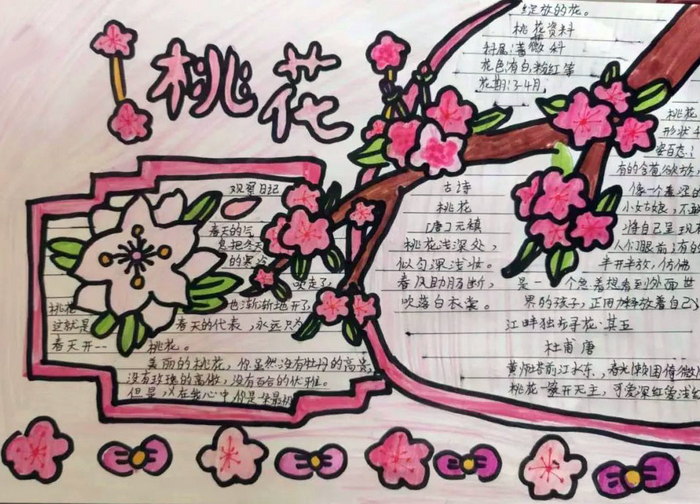 桃花
绽放的花。
桃花资料
科属:蔷薇科
花色:有白,粉红等
花期:3-4月。
观察日记
春天的
息把冬天
的寒冷
吹走了
桃花
地渐渐地开了
这就是
春天的代表,永远只为
春天开--
桃花。
美丽的桃花,你虽然没有牡丹的高贵
没有玫瑰的高傲,没有百合的优雅。
但是,在我心中你是
古诗
桃花
[唐]元稹
桃花浅深处,
似匀深浅妆。
春风助肠断,
吹落白衣裳。
江畔独步寻花·其五
杜甫 唐
黄师塔前江水东,春光懒困倚微
桃花一簇开无主,可爱深红爱浅
桃花
形状
姿百态:
有的含苞欲放,
像一个羞涩的
小女孩,不敢
将自己呈现
人们眼前;有的
半开半放,仿佛
是一个急着想看到外面世
界的孩子,正用力释放着自己